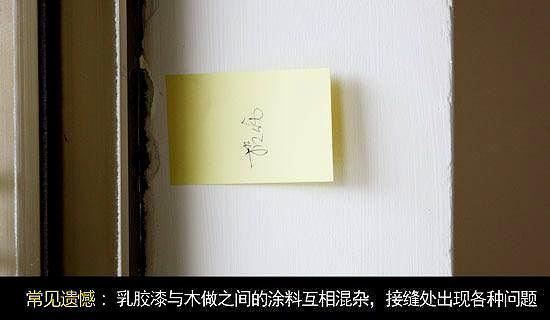 常见遗憾：乳胶漆与木做之间的涂料互相混杂，接缝处出现各种问题